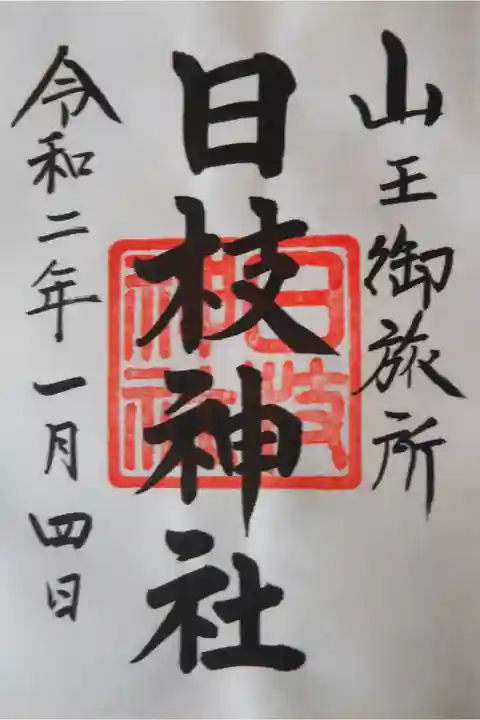 山王御旅所
日枝神社
日枝
神社
令和二年一月四日